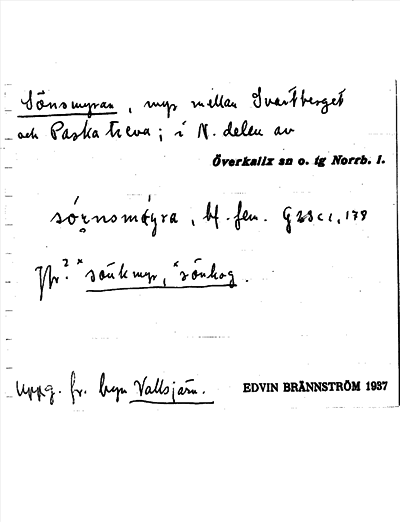 Sönsmyran, myr mellan Svartberget
och Paskatieva; i N. delen av
Överkalix sn o. tg Norrb. l.
bf. fen. G
Jfr ? * sönkmyr, * sönkog.
Uppg. fr. byn Vallsjärn.
EDVIN BRÄNNSTRÖM 1937